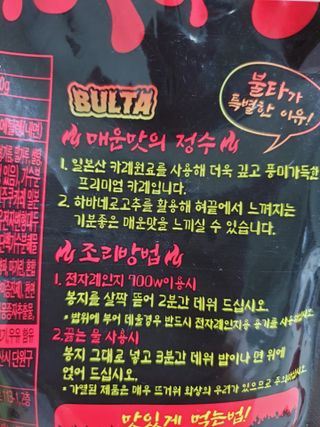 불타가
특별한 이유!
BULTA
매운맛의 정수
1. 일본산 카레원료를 사용해 더욱 깊고 풍미가득한
프리미엄 카레입니다.
2. 하바네로고추를 활용해 혀끝에서 느껴지는
기분좋은 매운맛을 느끼실 수 있습니다.
조리방법
1. 전자레인지 700w이용시
봉지를 살짝 뜯어 2분간 데워 드십시오.
* 밥위에 부어 데울경우 반드시 전자레인지용 용기를 사용하십시오
2. 끓는 물 사용시
봉지 그대로 넣고 3분간 데워 밥이나 면 위에
얹어 드십시오.
* 가열된 제품은 매우 뜨거워 화상의 우려가 있으므로 주의하십시오
맛있게 먹는법!